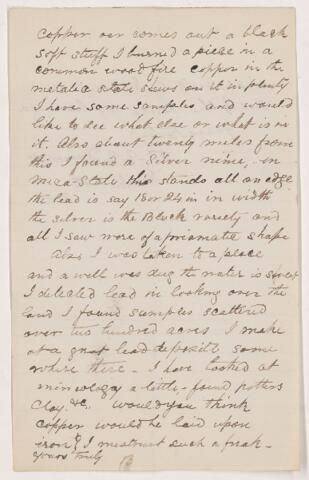 copper our comes out a black
soft stuff I burned a piece in a
common wood fire copper in the
metalic state shows on it in plenty
I have some samples and would
like to see what else or what is in
it. Also about twenty miles from
this I found a silver mine, in
mica-slate this stands all on edge
the lead is say 18 or 24 in in width
the silver is the Black variety and
all I saw were of a prismatic shape
Also I was taken to a place
and a well was dug the water is sweet
I detected lead in looking over the
land I found samples scattered
over two hundred acres I make
at a great lead deposit some
where there - I have looked at
minrology a little - found potters
Clay. &c. Would you think
copper would be laid upon
iron? I mistrust such a freak -
yours truly